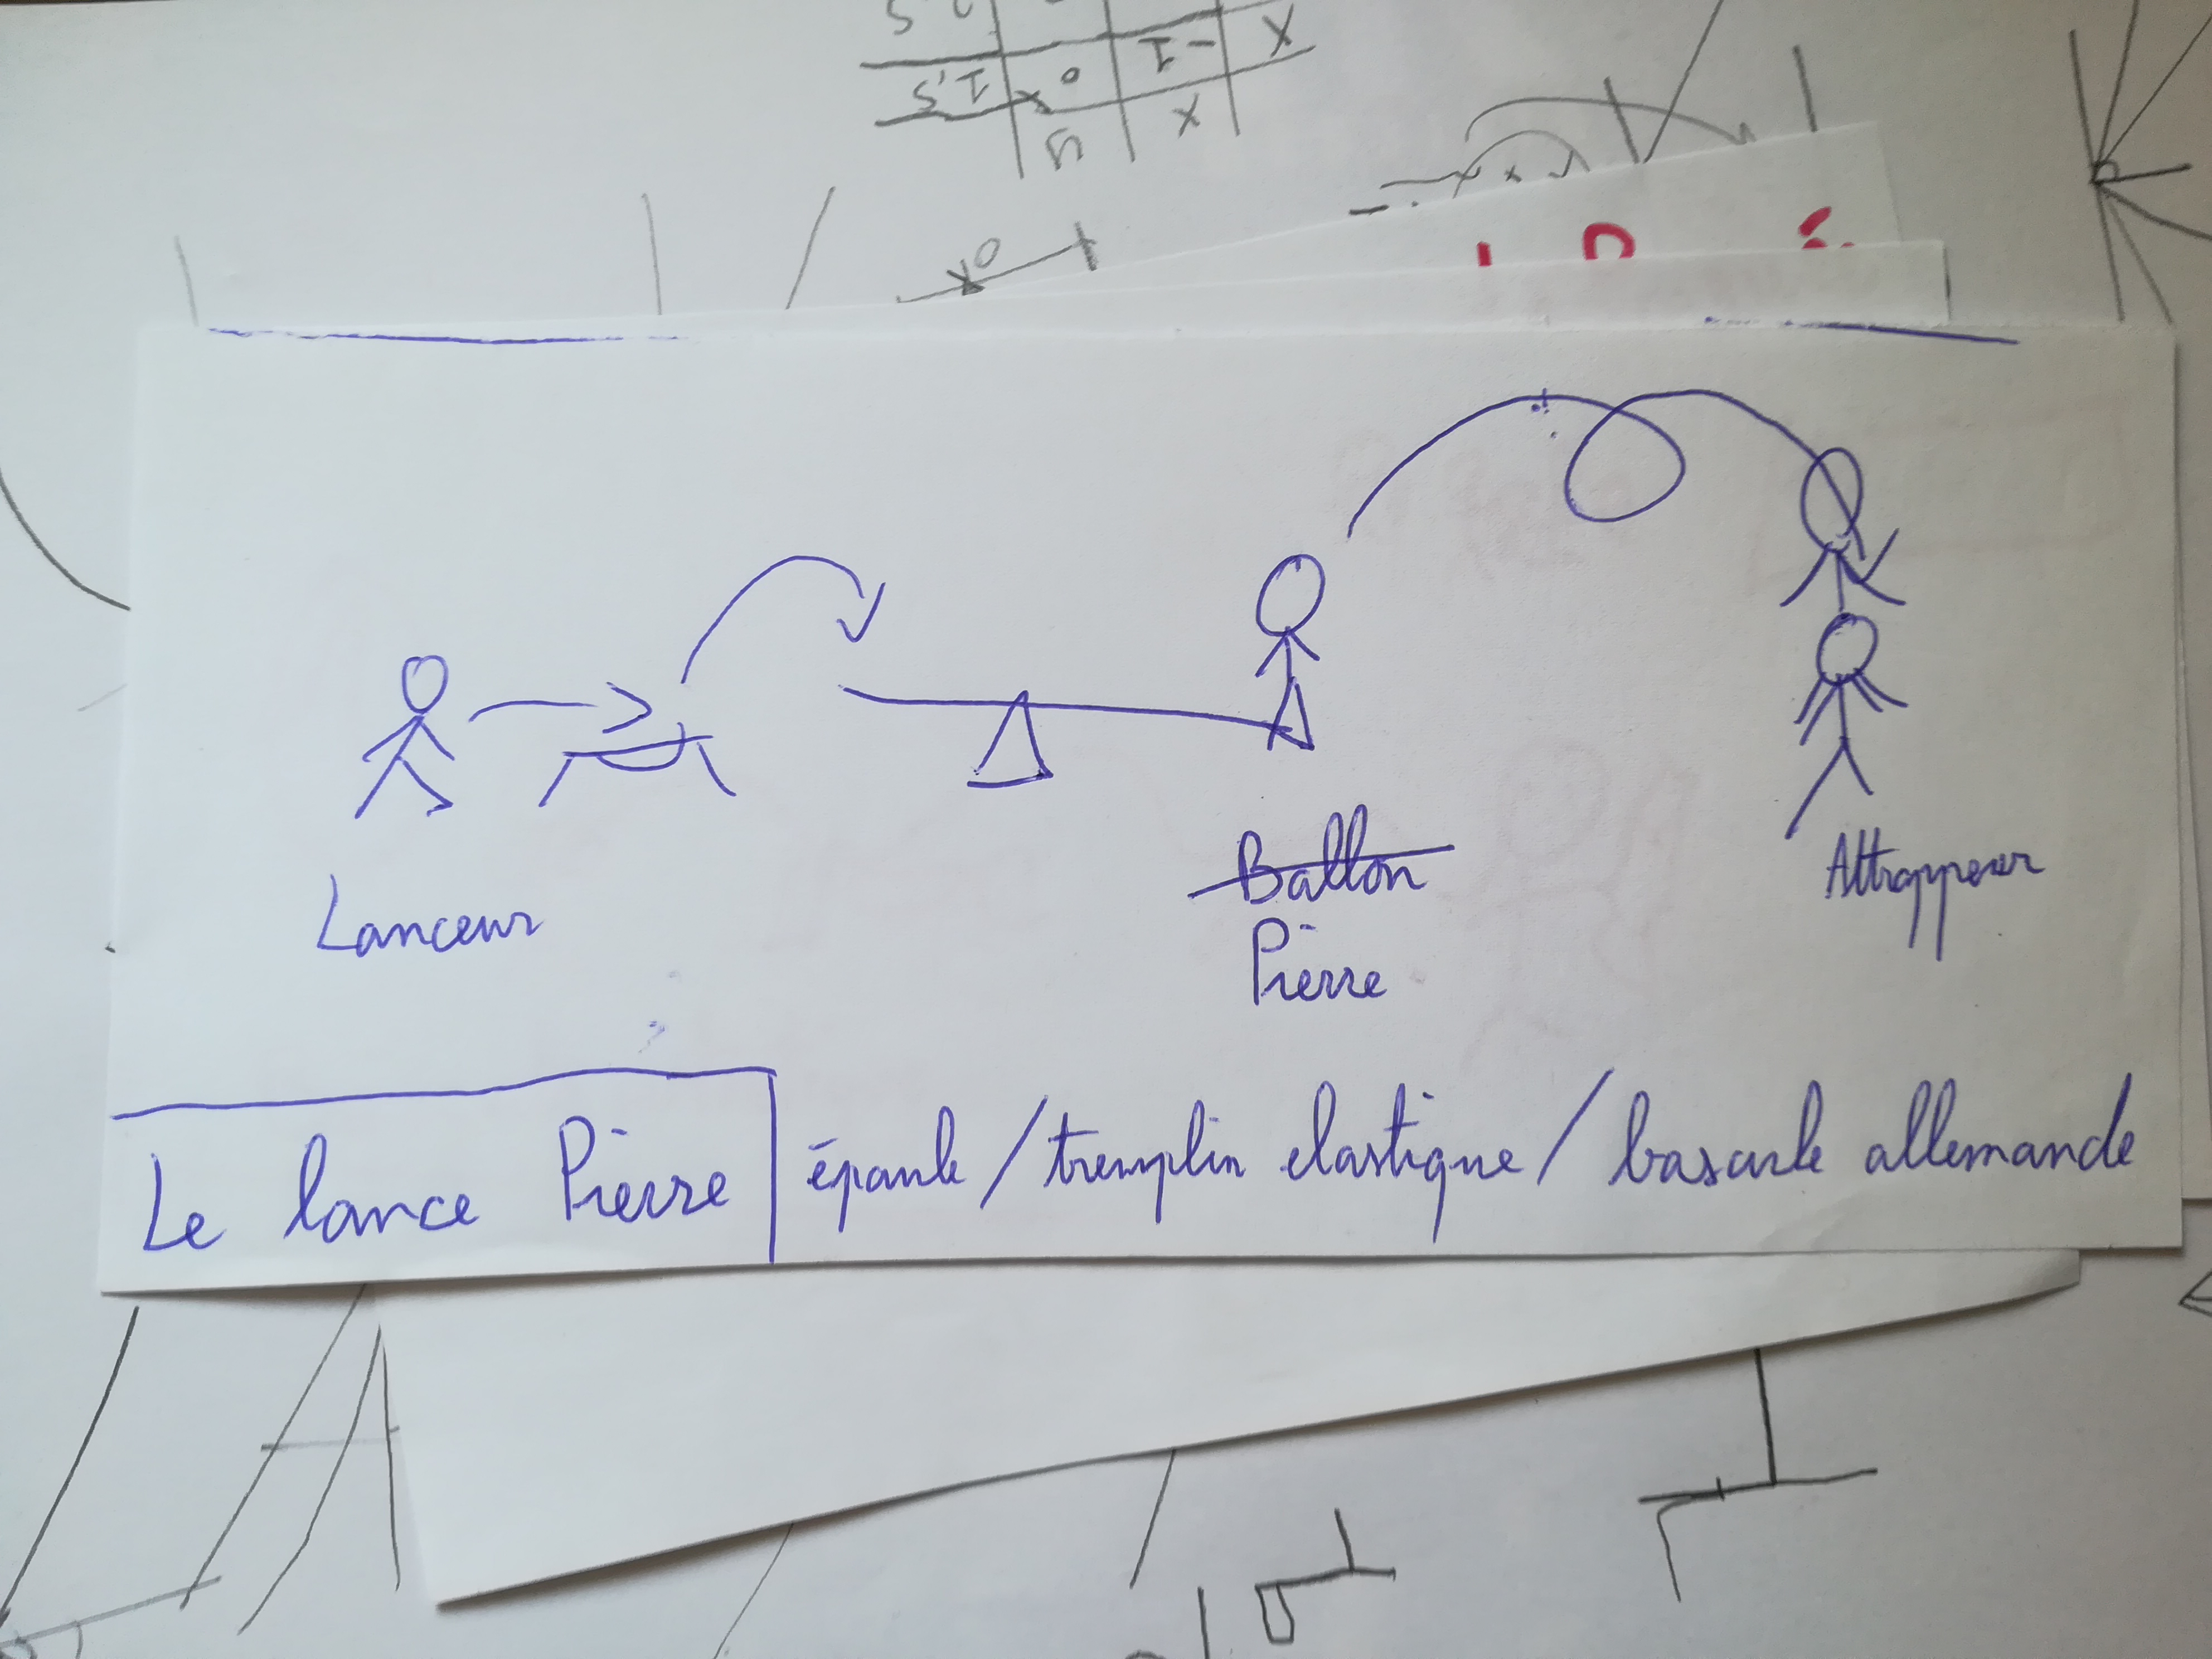 Lanceur
Ballon
Pierre
Attrappeur
Le lance Pierre
épaule / tremplin elastique / bascule allemande
1.5
0
-1
X
X